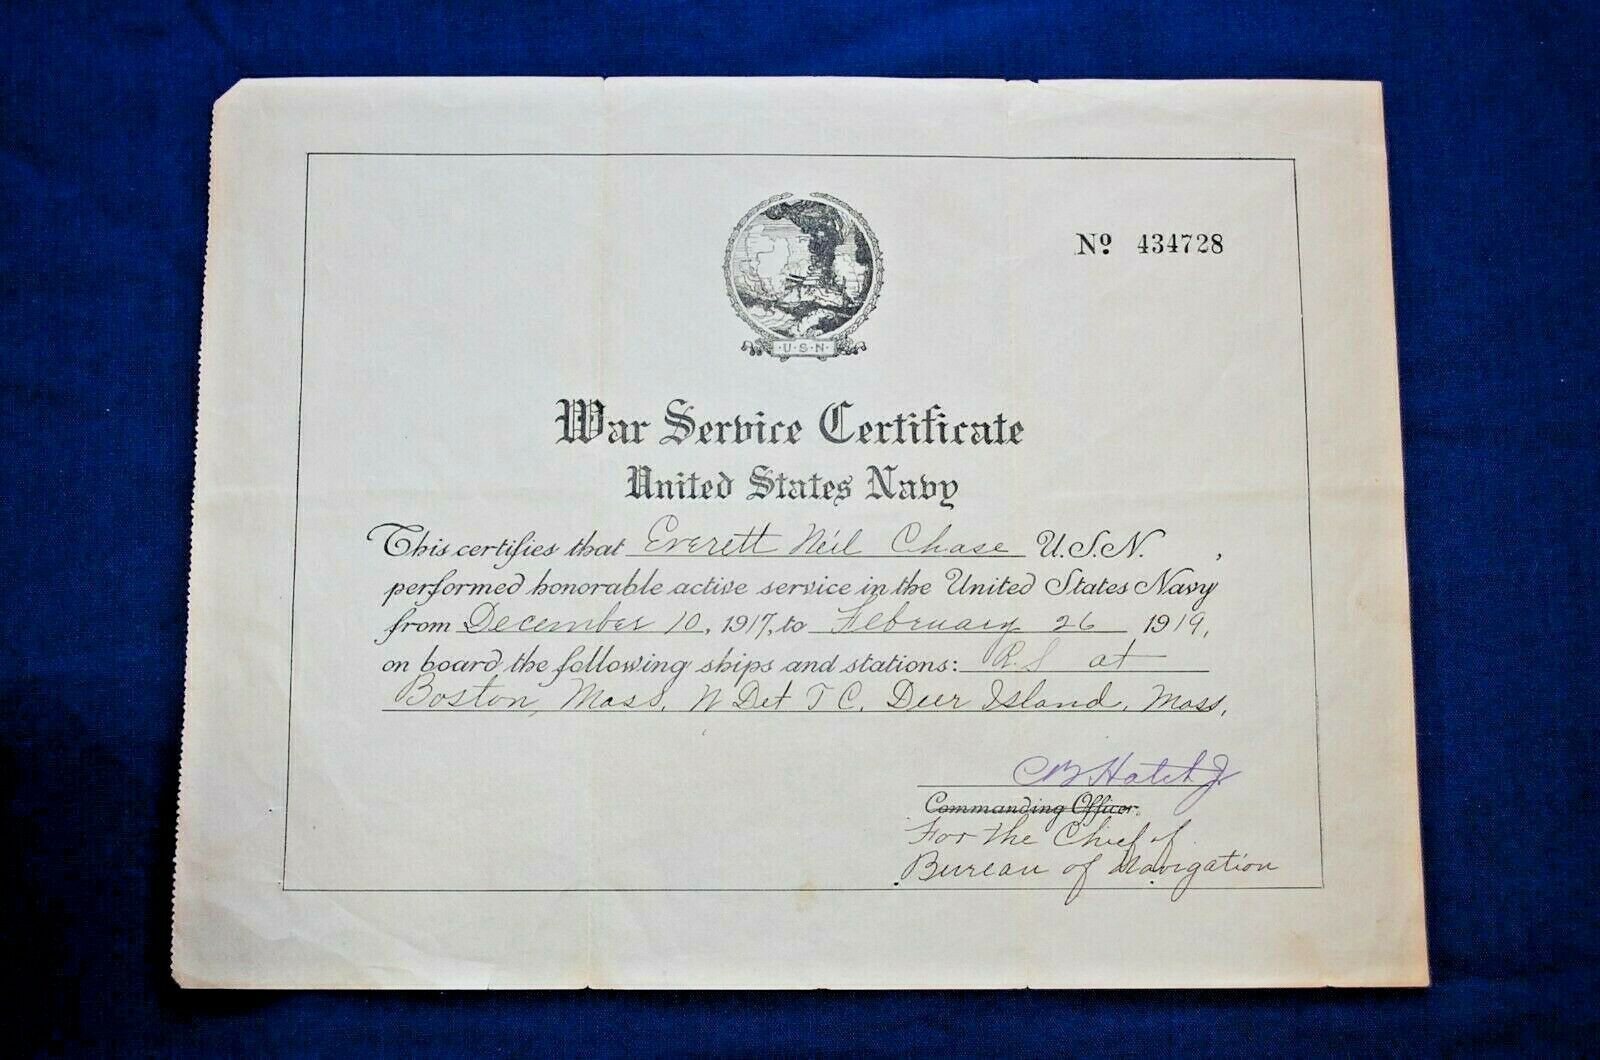 Nº 434728
·U·S·N·
War Service Certificate
United States Navy
This certifies that Everett Neil Chase U.S.N. ,
performed honorable active service in the United States Navy
from December 10, 1917, to February 26 1919,
on board the following ships and stations: R.S at
Boston, Mass, N Det T C, Deer Island, Mass,
CB Hatch Jr
Commanding Officer.
For the Chief of
Bureau of Navigation